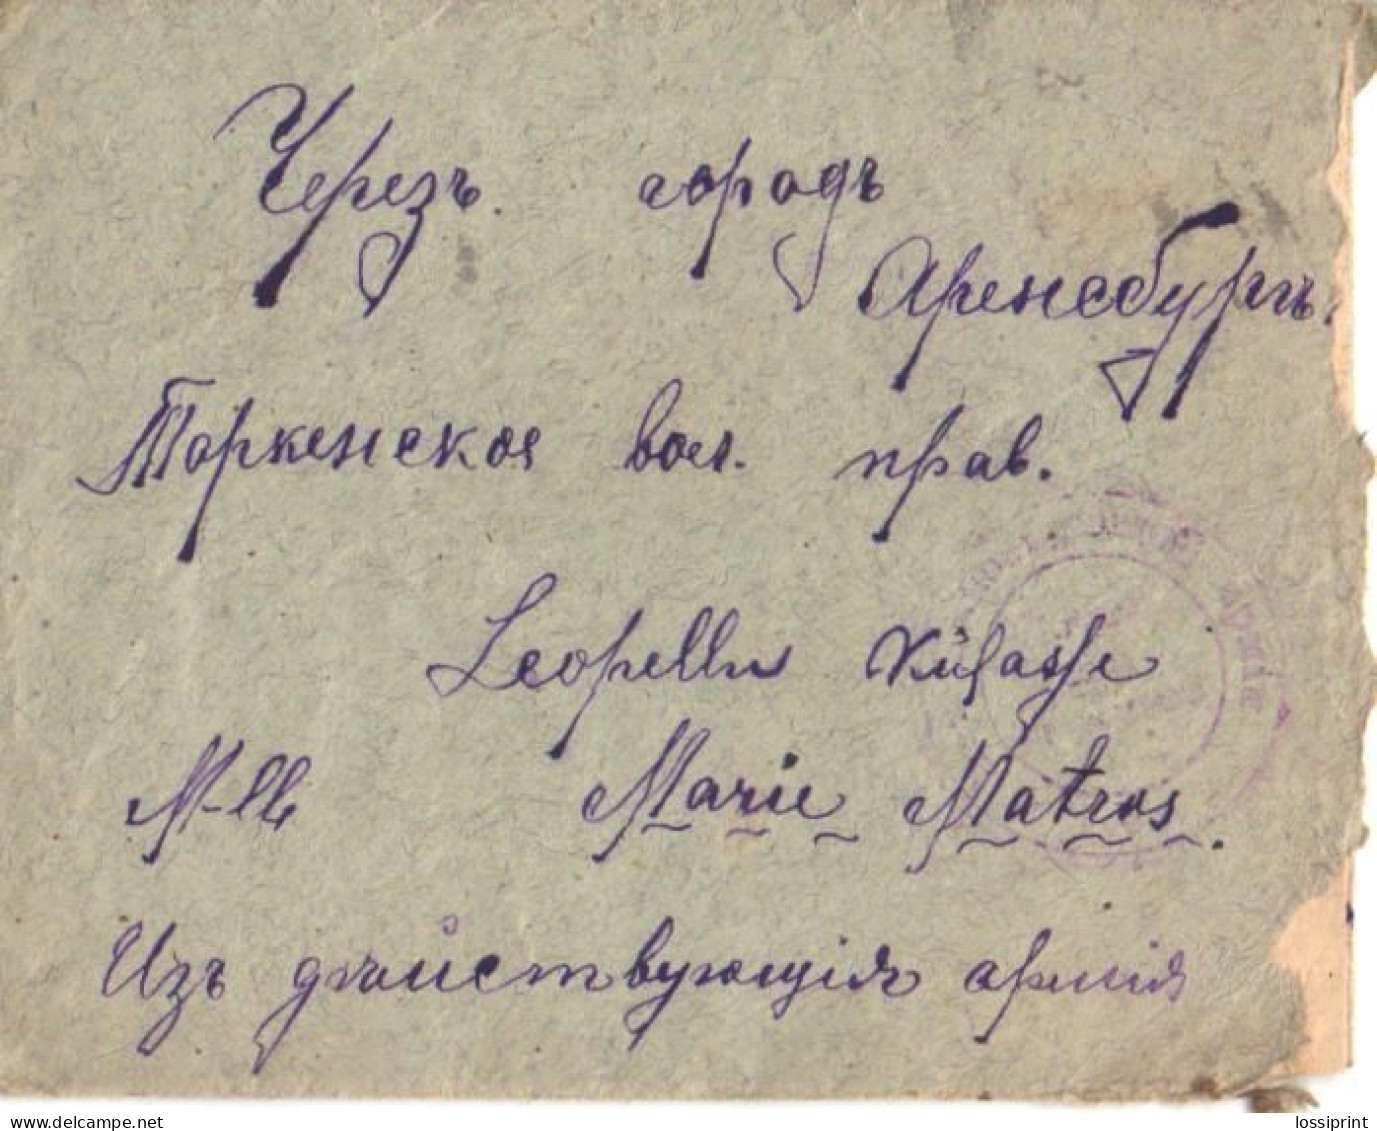 Черезъ городъ
Аренсбургъ.
Торкенское вол. прав.
Leopellus Külasse
M-lle Marie Matros.
Изъ дѣйствующія армія
lossiprint